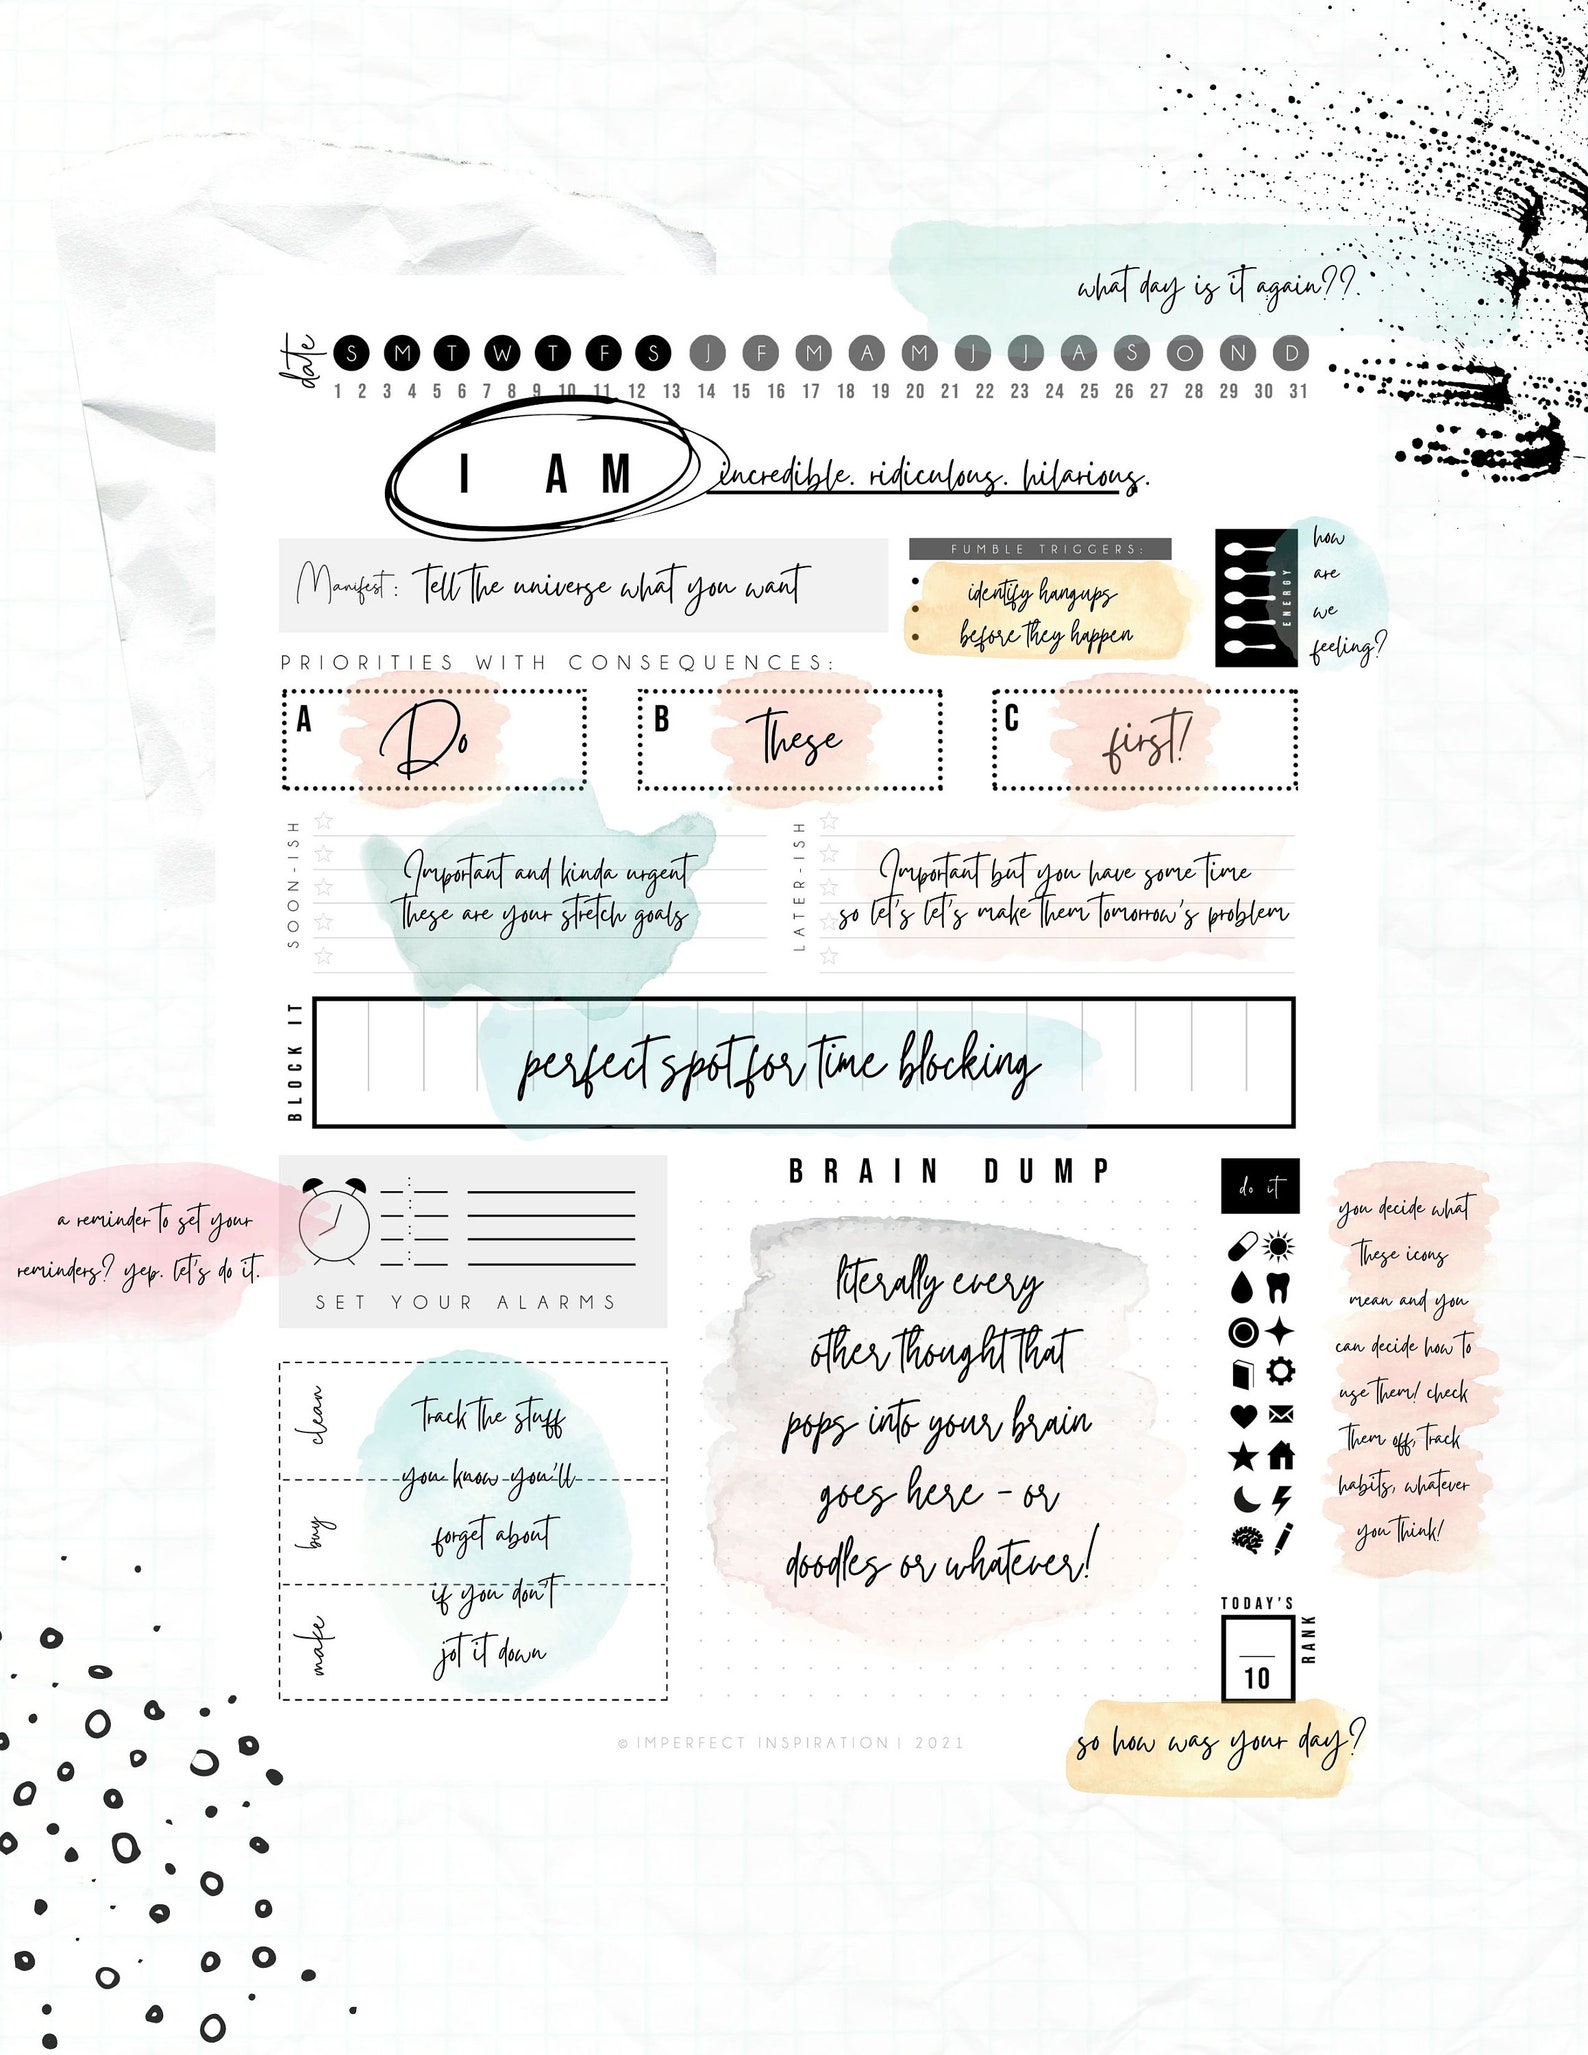 what day is it again??
date
S M T W T F S J F M A M J J A S O N D
1 2 3 4 5 6 7 8 9 10 11 12 13 14 15 16 17 18 19 20 21 22 23 24 25 26 27 28 29 30 31
I AM incredible. ridiculous. hilarious.
Manifest: Tell the universe what you want
FUMBLE TRIGGERS:
identify hangups
before they happen
ENERGY
how
are
we
feeling?
PRIORITIES WITH CONSEQUENCES:
A Do
B these
C first!
SOON-ISH
Important and kinda urgent
these are your stretch goals
LATER-ISH
Important but you have some time
so let's let's make them tomorrow's problem
BLOCK IT
perfect spot for time blocking
a reminder to set your
reminders? yep. let's do it.
SET YOUR ALARMS
clean
buy
make
track the stuff
you know you'll
forget about
if you don't
jot it down
BRAIN DUMP
literally every
other thought that
pops into your brain
goes here - or
doodles or whatever!
do it
you decide what
these icons
mean and you
can decide how to
use them! check
them off, track
habits, whatever
you think!
TODAY'S
RANK
10
so how was your day?
© IMPERFECT INSPIRATION | 2021